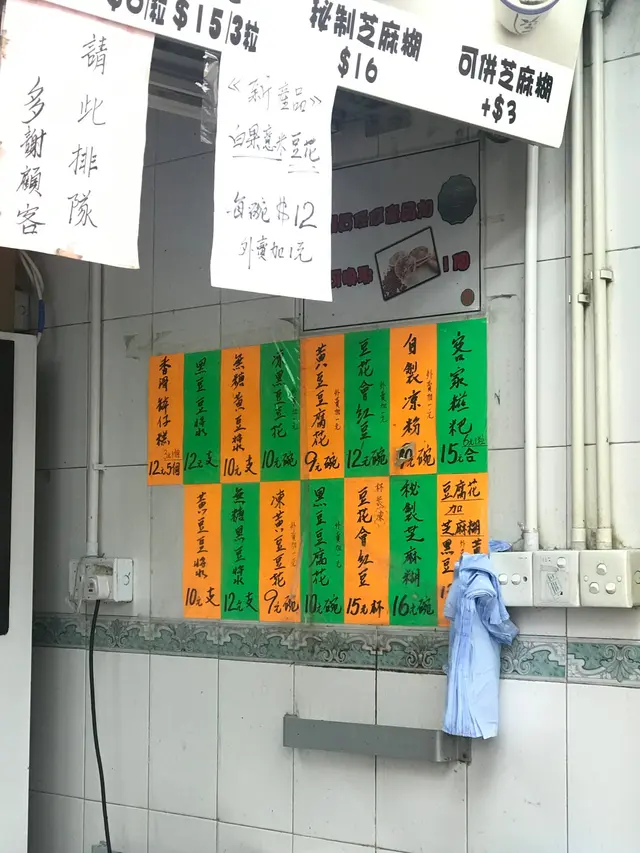 $15/3粒
秘制芝麻糊
$16
可併芝麻糊
+$3
請此排隊
多謝顧客
《新產品》
白果意米豆花
每碗$12
外賣加1元
客家糍粑
15元合
自製凉粉
外賣加一元
元碗
豆花會紅豆
外賣加一元
12元碗
黃豆豆腐花
外賣加一元
9元碗
冻黑豆豆花
10元碗
無糖黃豆豆漿
10元支
黑豆豆漿
12元支
香滑砵仔糕
12元5個
豆腐花
加
芝麻糊
黑豆
秘製芝麻糊
外賣加一元
16元碗
豆花會紅豆
杯裝凍
15元杯
黑豆豆腐花
外賣加一元
10元碗
凍黃豆豆花
外賣加一元
9元碗
無糖黑豆漿
12元支
黃豆豆漿
10元支